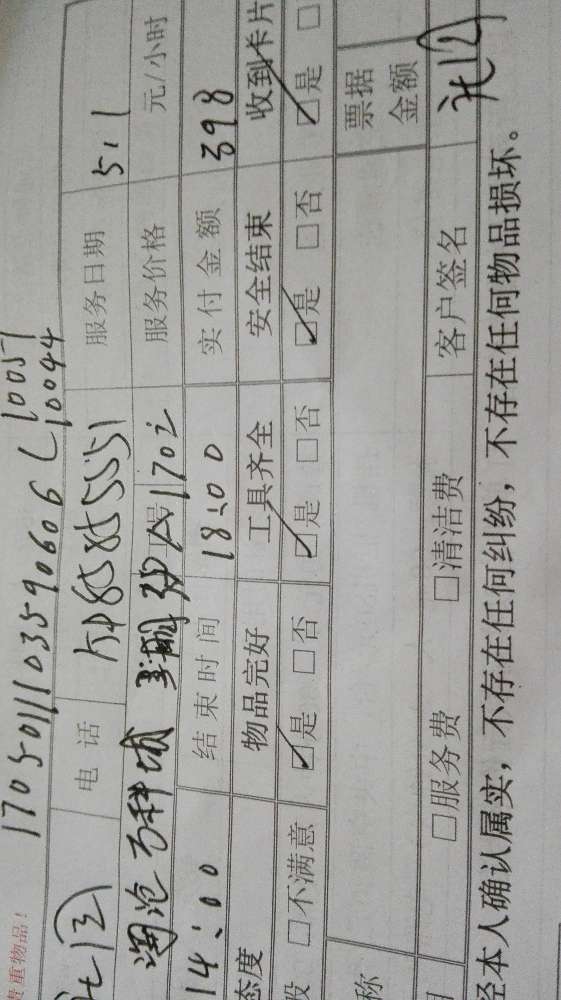 贵重物品！
17050111103590606 (10057
10044
电话
服务日期 5.1
服务价格 元/小时
14:00 结束时间 18:00 实付金额 398
态度 物品完好 工具齐全 安全结束 收到卡片
□不满意 ☑是 □否 ☑是 □否 ☑是 □否 ☑是 □
称 票据
金额
□服务费 □清洁费 客户签名
经本人确认属实，不存在任何纠纷，不存在任何物品损坏。